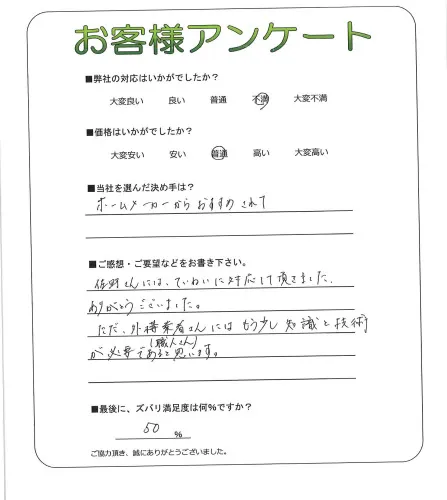 お客様アンケート
■弊社の対応はいかがでしたか？
大変良い 良い 普通 不満 大変不満
■価格はいかがでしたか？
大変安い 安い 普通 高い 大変高い
■当社を選んだ決め手は？
ホームメーカーからおすすめされて
■ご感想・ご要望などをお書き下さい。
佐野さんには、ていねいに対応して頂きました。
ありがとうございました。
ただ、外構業者さんにはもう少し知識と技術
(職人さん)
が必要であると思います。
■最後に、ズバリ満足度は何％ですか？
50 ％
ご協力頂き、誠にありがとうございました。